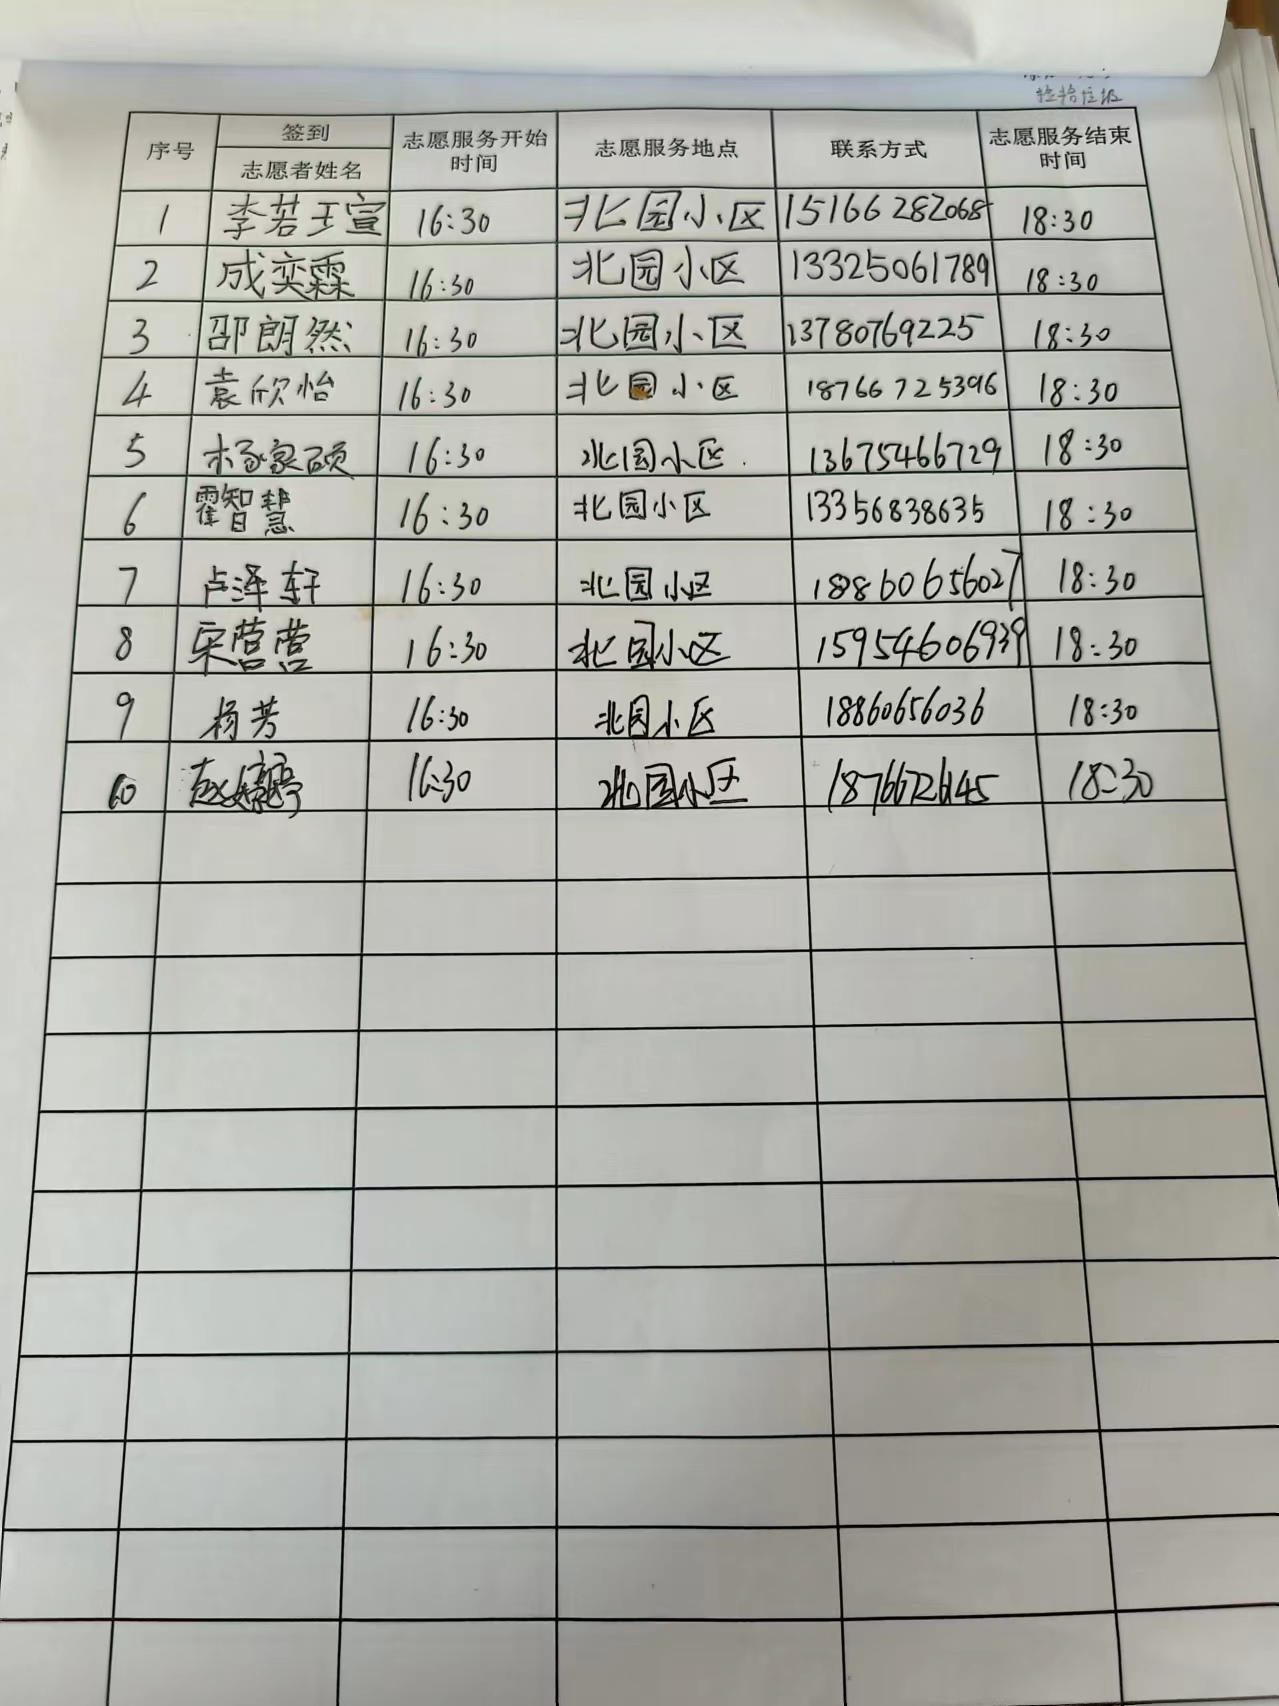 捡拾垃圾
序号 签到 志愿者姓名 志愿服务开始时间 志愿服务地点 联系方式 志愿服务结束时间
1 李若玉宣 16:30 北园小区 15166282068 18:30
2 成奕霖 16:30 北园小区 13325061789 18:30
3 邵朗然 16:30 北园小区 13780769225 18:30
4 袁欣怡 16:30 北园小区 18766725396 18:30
5 杨家硕 16:30 北园小区 13675466729 18:30
6 霍智慧 16:30 北园小区 13356838635 18:30
7 卢泽轩 16:30 北园小区 18860656027 18:30
8 宋营营 16:30 北园小区 15954606939 18:30
9 杨芳 16:30 北园小区 18860656036 18:30
10 赵婷婷 16:30 北园小区 18:30